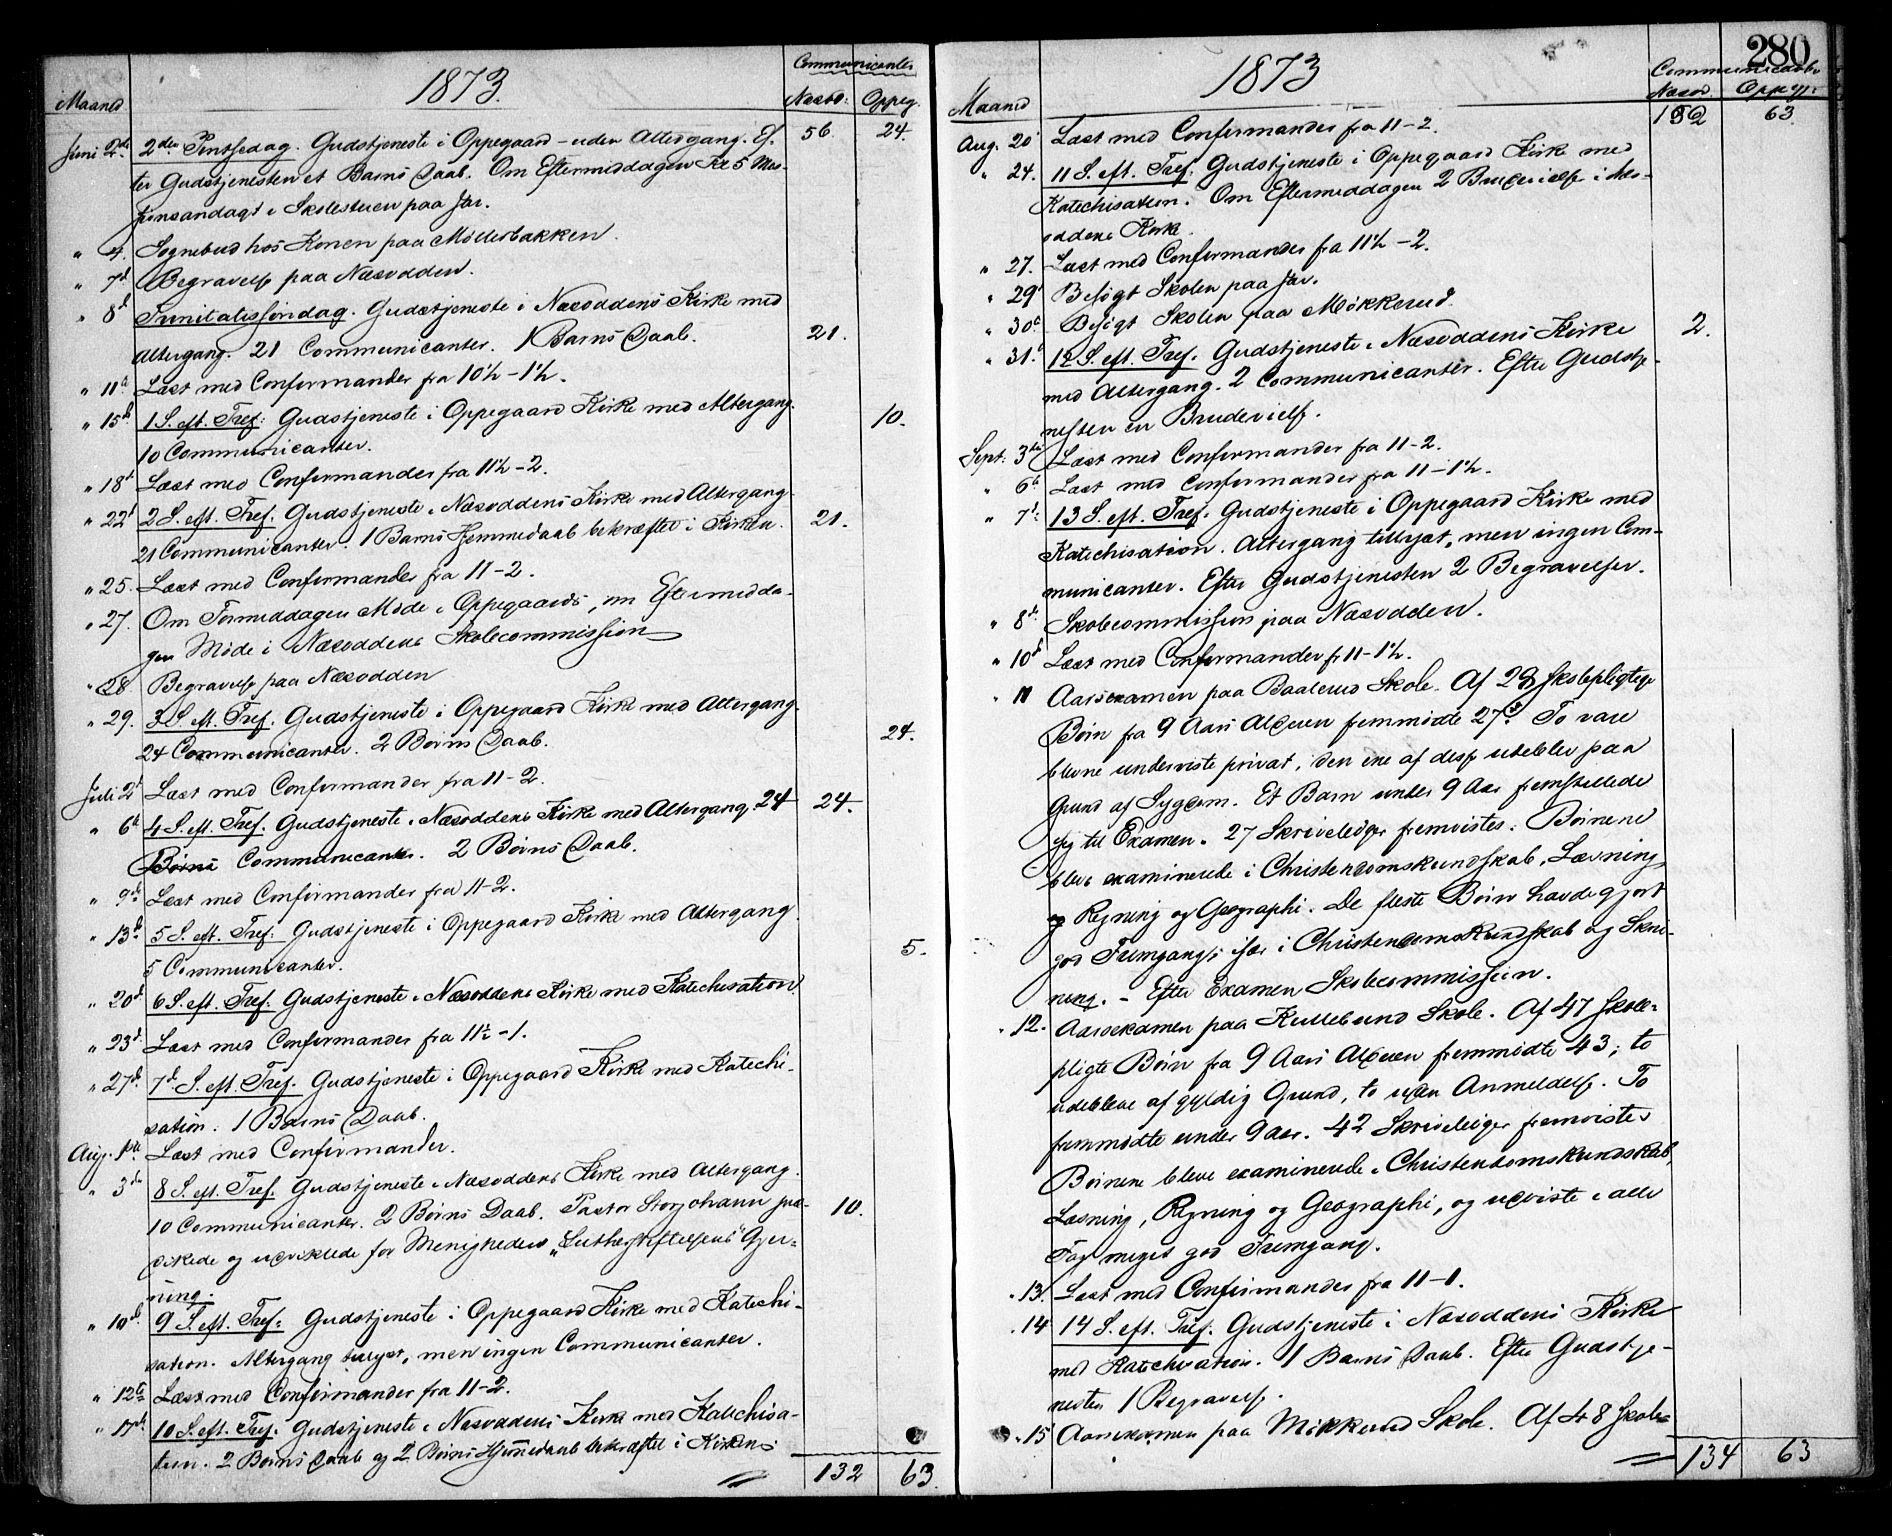 1873.
Communicanter
Maaned
Næsod:
Oppeg.
Juni 2d. 2den Pintsedag. Gudstjeneste i Oppegaard - uden Altergang. Ef- 56. 24.
ter Gudstjenesten et Barns Daab. Om Eftermiddagen Kl 5 Mis-
sionsandagt i Skolestuen paa Jar.
" 4. Sognebud hos Konen paa Møllerbakken.
" 7d Begravelse paa Næsodden.
" 8d Trinitatissøndag. Gudstjeneste i Næsoddens Kirke med
Altergang. 21 Communicanter. 1 Barns Daab. 21.
" 11d Læst med Confirmander fra 10½ - 1½.
" 15d 1 S. eft. Tref: Gudstjeneste i Oppegaard Kirke med Altergang. 10.
10 Communicanter.
" 18d Læst med Confirmander fra 11½ - 2.
" 22d 2 S. eft. Tref: Gudstjeneste i Næsoddens Kirke med Altergang.
21 Communicanter. 1 Barns Hjemmedaab bekræftet i Kirken. 21.
" 25. Læst med Confirmander fra 11-2.
" 27. Om Formiddagen Møde i Oppegaards, om Eftermidda-
gen Møde i Næsoddens Skolecommission
" 28 Begravelse paa Næsodden
" 29. 3 S. eft. Tref. Gudstjeneste i Oppegaard Kirke med Altergang.
24 Communicanter. 2 Børns Daab. 24.
Juli 2d Læst med Confirmander fra 11-2.
" 6d 4 S. eft. Tref. Gudstjeneste i Næsoddens Kirke med Altergang. 24 24.
Børns Communicanter. 2 Børns Daab.
" 9d Læst med Confirmander fra 11-2.
" 13d 5 S. eft. Tref: Gudstjeneste i Oppegaard Kirke med Altergang
5 Communicanter. 5.
" 20d 6 S. eft. Tref: Gudstjeneste i Næsoddens Kirke med Katechisation.
" 23d Læst med Confirmander fra 11½-1.
" 27d 7d S. eft. Tref. Gudstjeneste i Oppegaard Kirke med Katechi-
sation. 1 Barns Daab.
Aug. 1ste Læst med Confirmander.
" 3die 8 S. eft. Tref. Gudstjeneste i Næsoddens Kirke med Altergang.
10 Communicanter. 2 Børns Daab. Pastor Storjohann præ- 10.
dikede og udviklede for Menigheden „Lutherstiftelsens" Gjer=
ning.
" 10d. 9 S. eft. Tref: Gudstjeneste i Oppegaard Kirke med Katechi-
sation. Altergang tillyst, men ingen Communicanter.
" 12te Læst med Confirmander fra 11-2.
" 17de 10 S. eft. Tref. Gudstjeneste i Næsoddens Kirke med Katechisa-
tion. 2 Børns Daab og 2 Børns Hjemmedaab bekræftet i Kirken.
132 63.
280
1873
Communicanter
Maaned
Næsod.
Oppeg:
Aug. 20 Læst med Confirmander fra 11-2. 132 63
" 24. 11 S. eft. Tref: Gudstjeneste i Oppegaard Kirke med
Katechisation. Om Eftermiddagen 2 Brudevielser i Næs-
oddens Kirke.
" 27. Læst med Confirmander fra 11½-2.
" 29 Besøgt Skolen paa Jar.
" 30d Besøgt Skolen paa Møkkerud.
" 31. 12 S. eft. Tref. Gudstjeneste i Næsoddens Kirke 2.
med Altergang. 2 Communicanter. Efter Gudstje-
nesten en Brudevielse.
Sept. 3die Læst med Confirmander fra 11-2.
" 6d Læst med Confirmander fra 11-1½.
" 7d 13 S. eft. Tref. Gudstjeneste i Oppegaard Kirke med
Katechisation. Altergang tillyst, men ingen Com-
municanter. Efter Gudstjenesten 2 Begravelser.
" 8d. Skolecommission paa Næsodden.
" 10d Læst med Confirmander fr 11-1½.
" 11 Aarsexamen paa Baalerud Skole. Af 29 skolepligtige
Børn fra 9 Aars Alderen fremmødte 27. To vare
blevne underviste privat, den ene af disse udeblev paa
Grund af Sygdom. Et Barn under 9 Aar fremstillede
sig til Examen. 27 Skrivebøger fremvistes. Børnene
bleve examinerede i Christendomskundskab, Læsning
og Regning og Geographi. De fleste Børn havde gjort
god Fremgang, især i Christendomskundskab og Skriv-
ning. - Efter Examen Skolecommission.
" 12. Aarsexamen paa Kullebund Skole. Af 47 Skole-
pligte Børn fra 9 Aars Alderen fremmødte 43; to
udebleve af gyldig Grund, to uden Anmeldelse. To
fremmødte under 9 Aar. 42 Skrivebøger fremvistes
Børnene bleve examinerede i Christendomskundskab,
Læsning, Regning og Geographi, og udviste i alle
Fag meget god Fremgang.
" 13. Læst med Confirmander fra 11-1.
" 14 14 S. eft. Tref. Gudstjeneste i Næsoddens Kirke
med Katechisation. 1 Barns Daab. Efter Gudstje-
nesten 1 Begravelse.
" 15 Aarsexamen paa Møkkerud Skole. Af 48 skole-
134 63